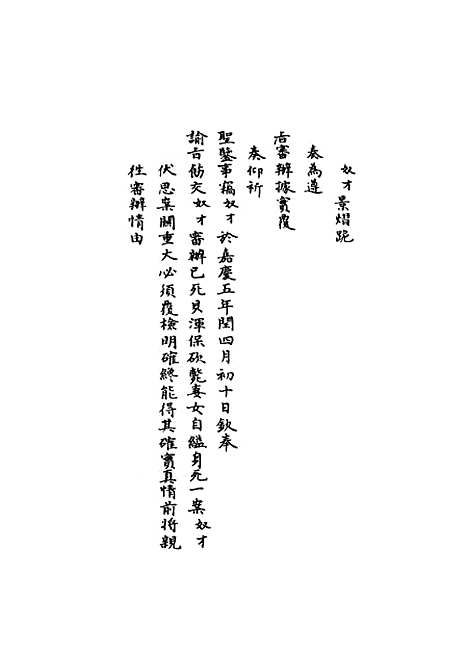 奴才景熠跪
奏為遵
旨審辦據實覆
奏仰祈
聖鑒事竊奴才於嘉慶五年閏四月初十日欽奉
諭吉飭交奴才審辦已死貝渾保砍斃妻女自縊身死一案奴才
伏思案關重大必須覆檢明確終能得其確實真情前將親
徃審辦情由